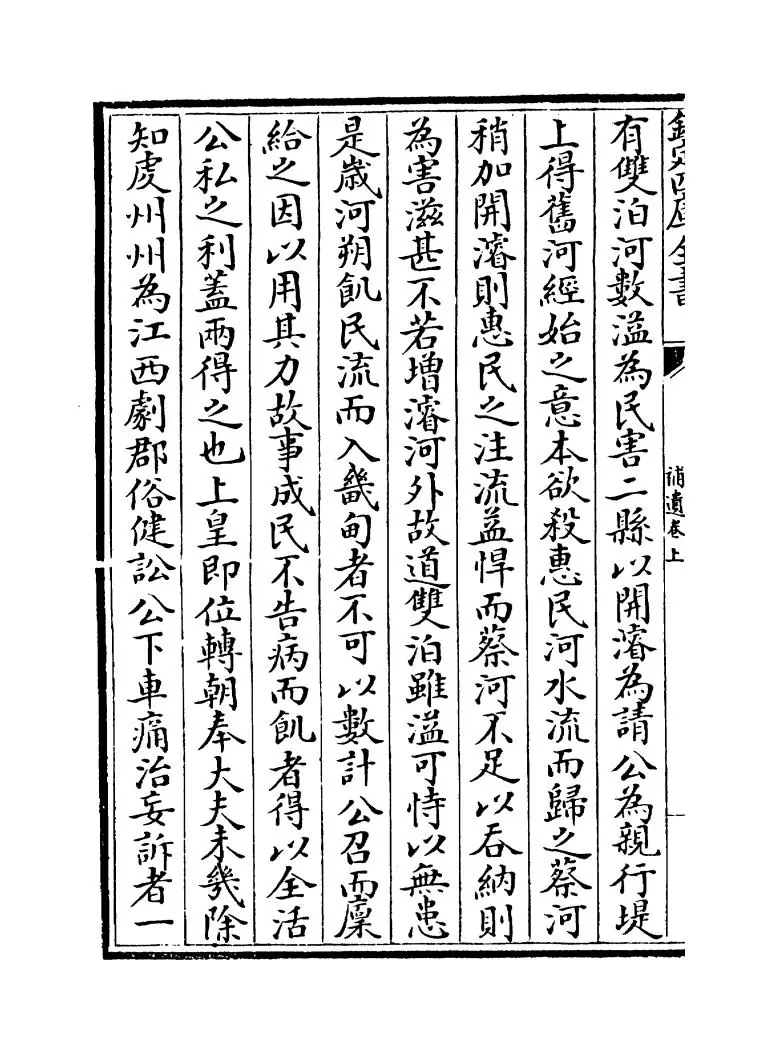 欽定四庫全書
補遺卷上
有雙泊河數溢為民害二縣以開濬為請公為親行堤
上得舊河經始之意本欲殺惠民河水流而歸之蔡河
稍加開濬則惠民之注流益悍而蔡河不足以吞納則
為害滋甚不若增濬河外故道雙泊雖溢可恃以無患
是歲河朔飢民流而入畿甸者不可以數計公召而廩
給之因以用其力故事成民不告病而飢者得以全活
公私之利蓋兩得之也上皇即位轉朝奉大夫未幾除
知虔州州為江西劇郡俗健訟公下車痛治妄訴者一